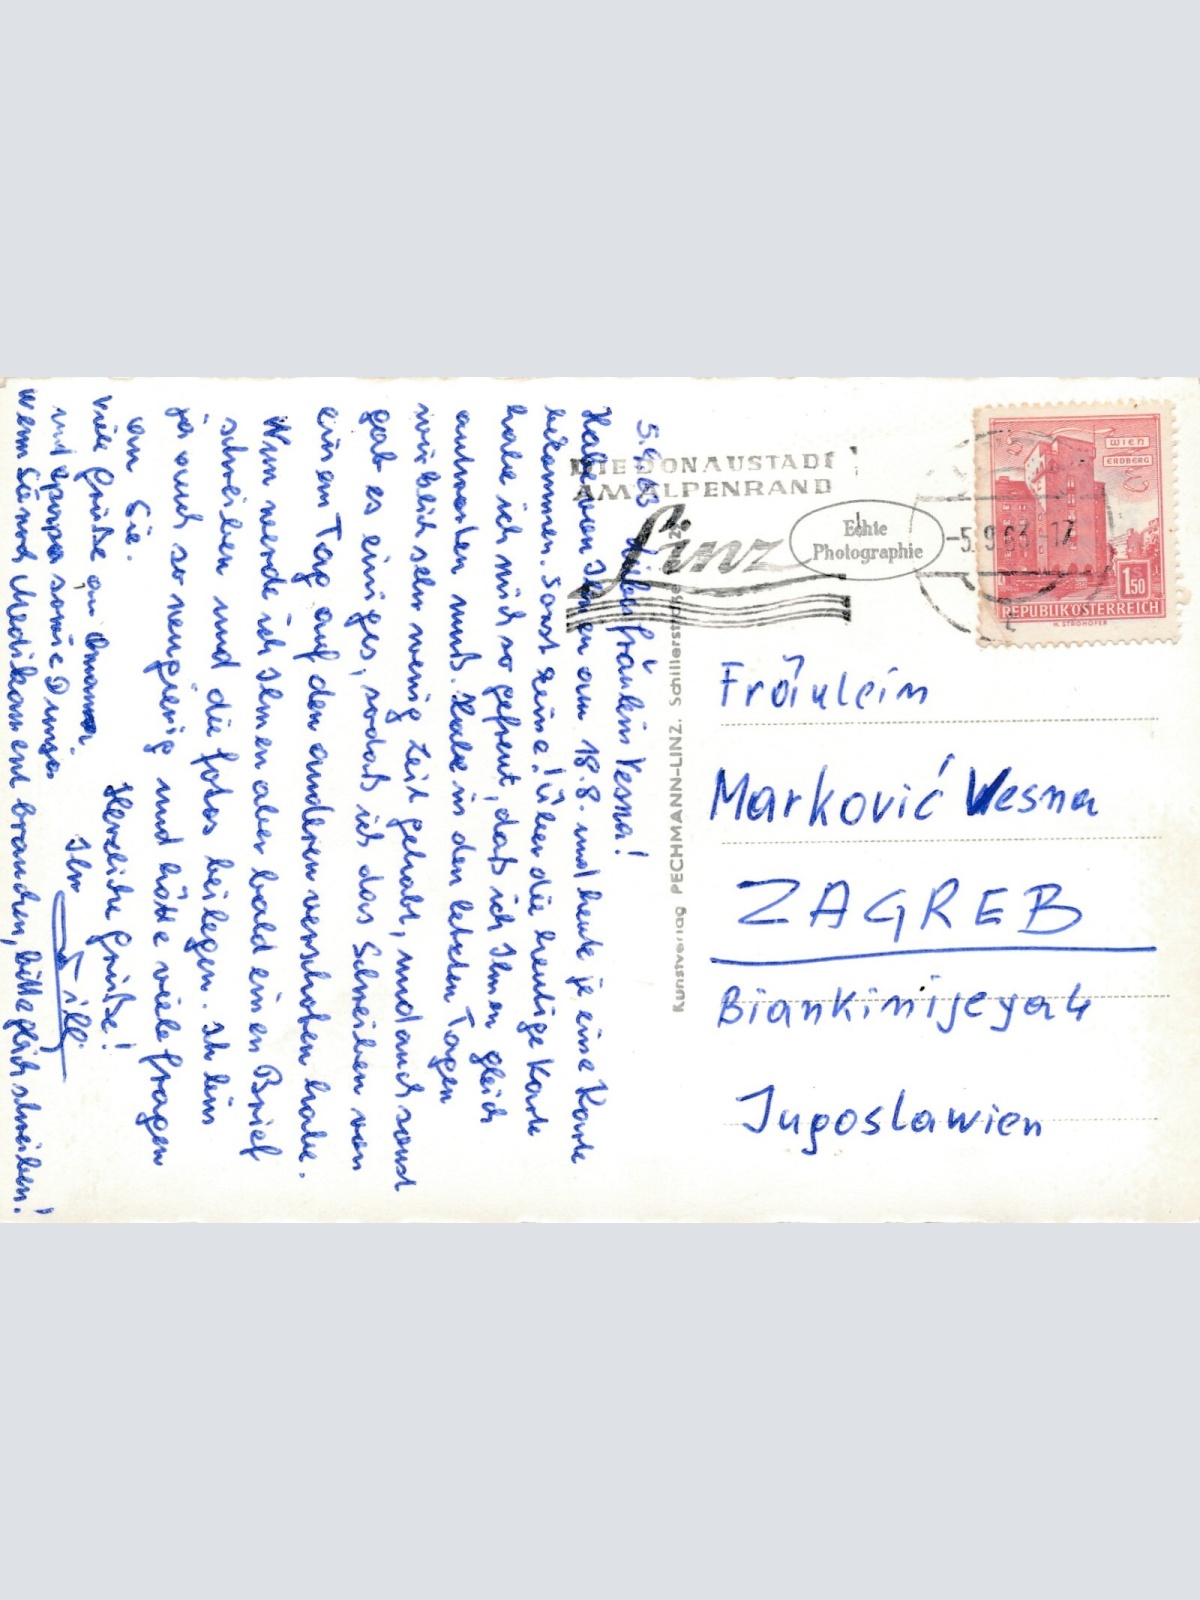 5.9.63 Liebes Fräulein Vesna!
Habe von Ihnen am 18.8. und heute je eine Karte
bekommen. Sonst keine! Über die heutige Karte
habe ich mich so gefreut, daß ich Ihnen gleich
antworten muß. Habe in den letzten Tagen
wirklich sehr wenig Zeit gehabt, und auch sonst
gab es einiges, sodaß ich das Schreiben von
einem Tag auf den anderen verschoben habe.
Nun werde ich Ihnen aber bald einen Brief
schreiben und die Fotos beilegen. Ich bin
ja auch so neugierig und hätte viele Fragen
an Sie.
Herzliche Grüße!
Viele Grüße an Omama
und sowie Dunja
Ihr Willi
Wenn Sie noch Medikament brauchen, bitte gleich schreiben!
Kunstverlag PECHMANN-LINZ. Schillerstraße
DIE DONAUSTADT
AM ALPENRAND
Linz
Echte
Photographie
-5.9.63-17
WIEN
ERDBERG
1.50
REPUBLIK ÖSTERREICH
H. STROHOFER
Fräulein
Marković Vesna
ZAGREB
Jugoslawien